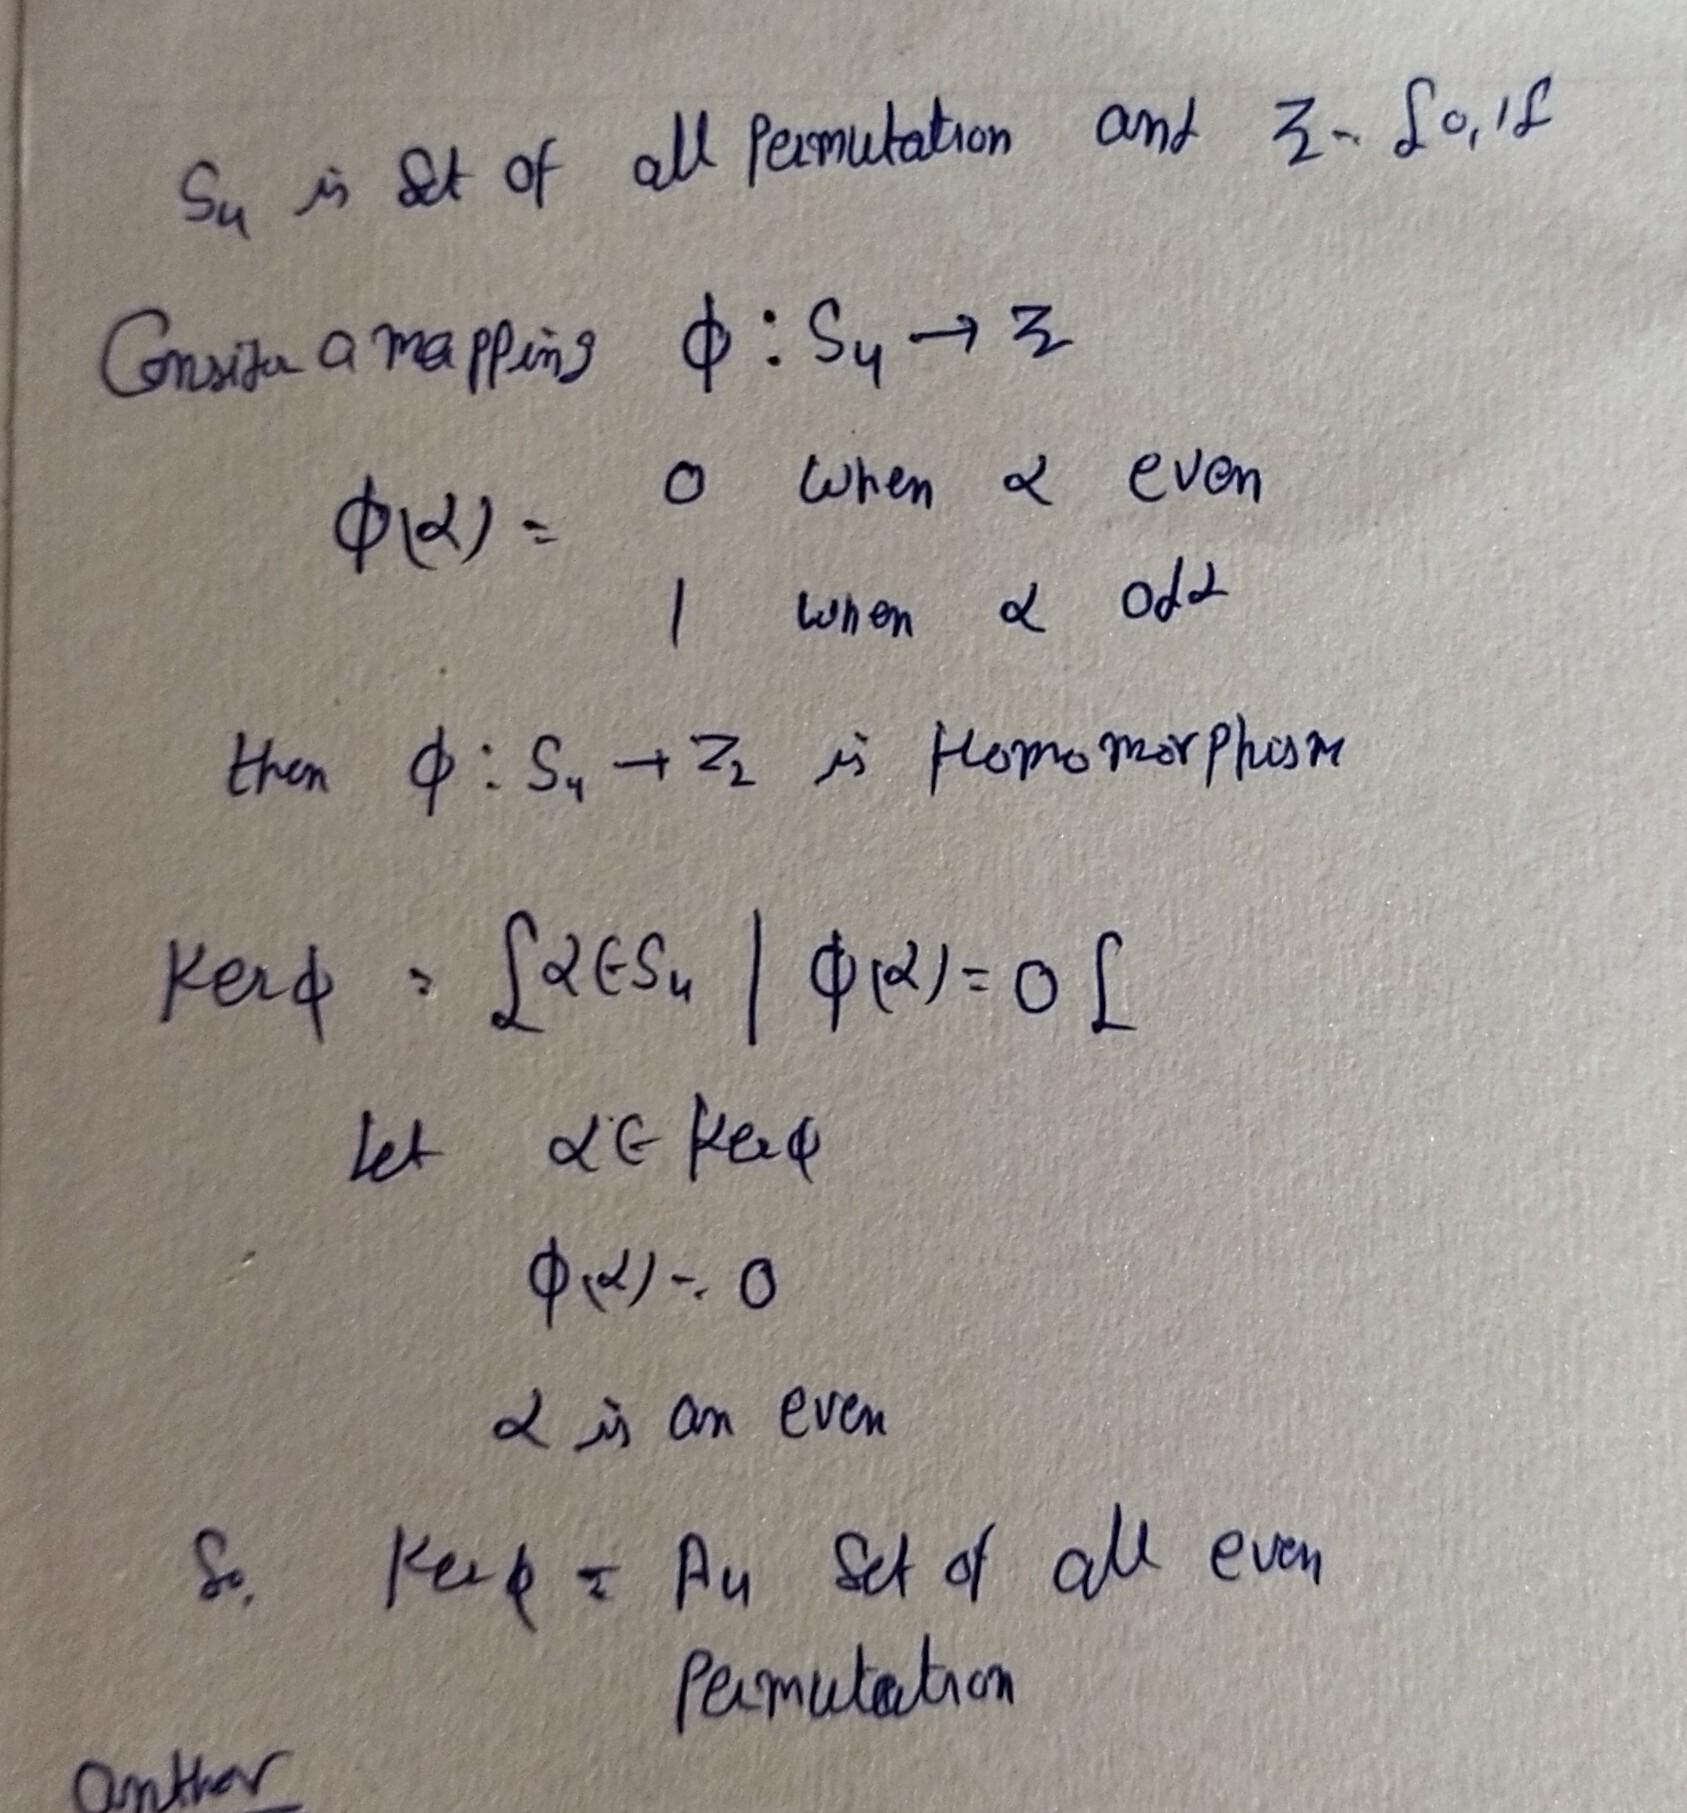 S₄ is Set of all Permutation and Z₂ = {0,1}
Consider a mapping ϕ : S₄ → Z₂
ϕ(α) = 0 when α even
1 when α odd
then ϕ : S₄ → Z₂ is Homomorphism
Kerϕ = {α∈S₄ | ϕ(α) = 0}
Let α ∈ Kerϕ
ϕ(α) = 0
α is an even
So, Kerϕ = A₄ Set of all even
Permutation
anther